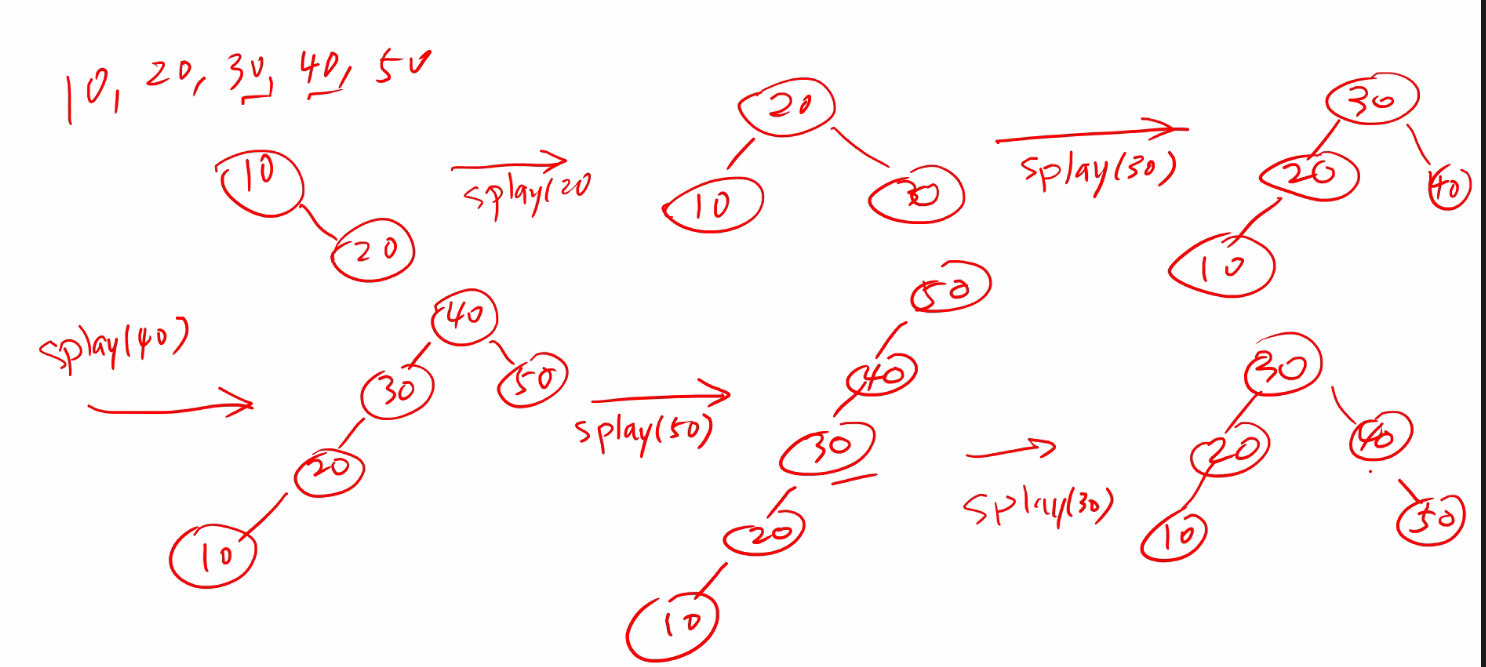 10, 20, 30, 40, 50
10
20
splay(20
20
10
30
splay(30)
30
20
40
10
splay(40)
40
30
50
20
10
splay(50)
50
40
30
20
10
splay(30)
30
20
40
10
50